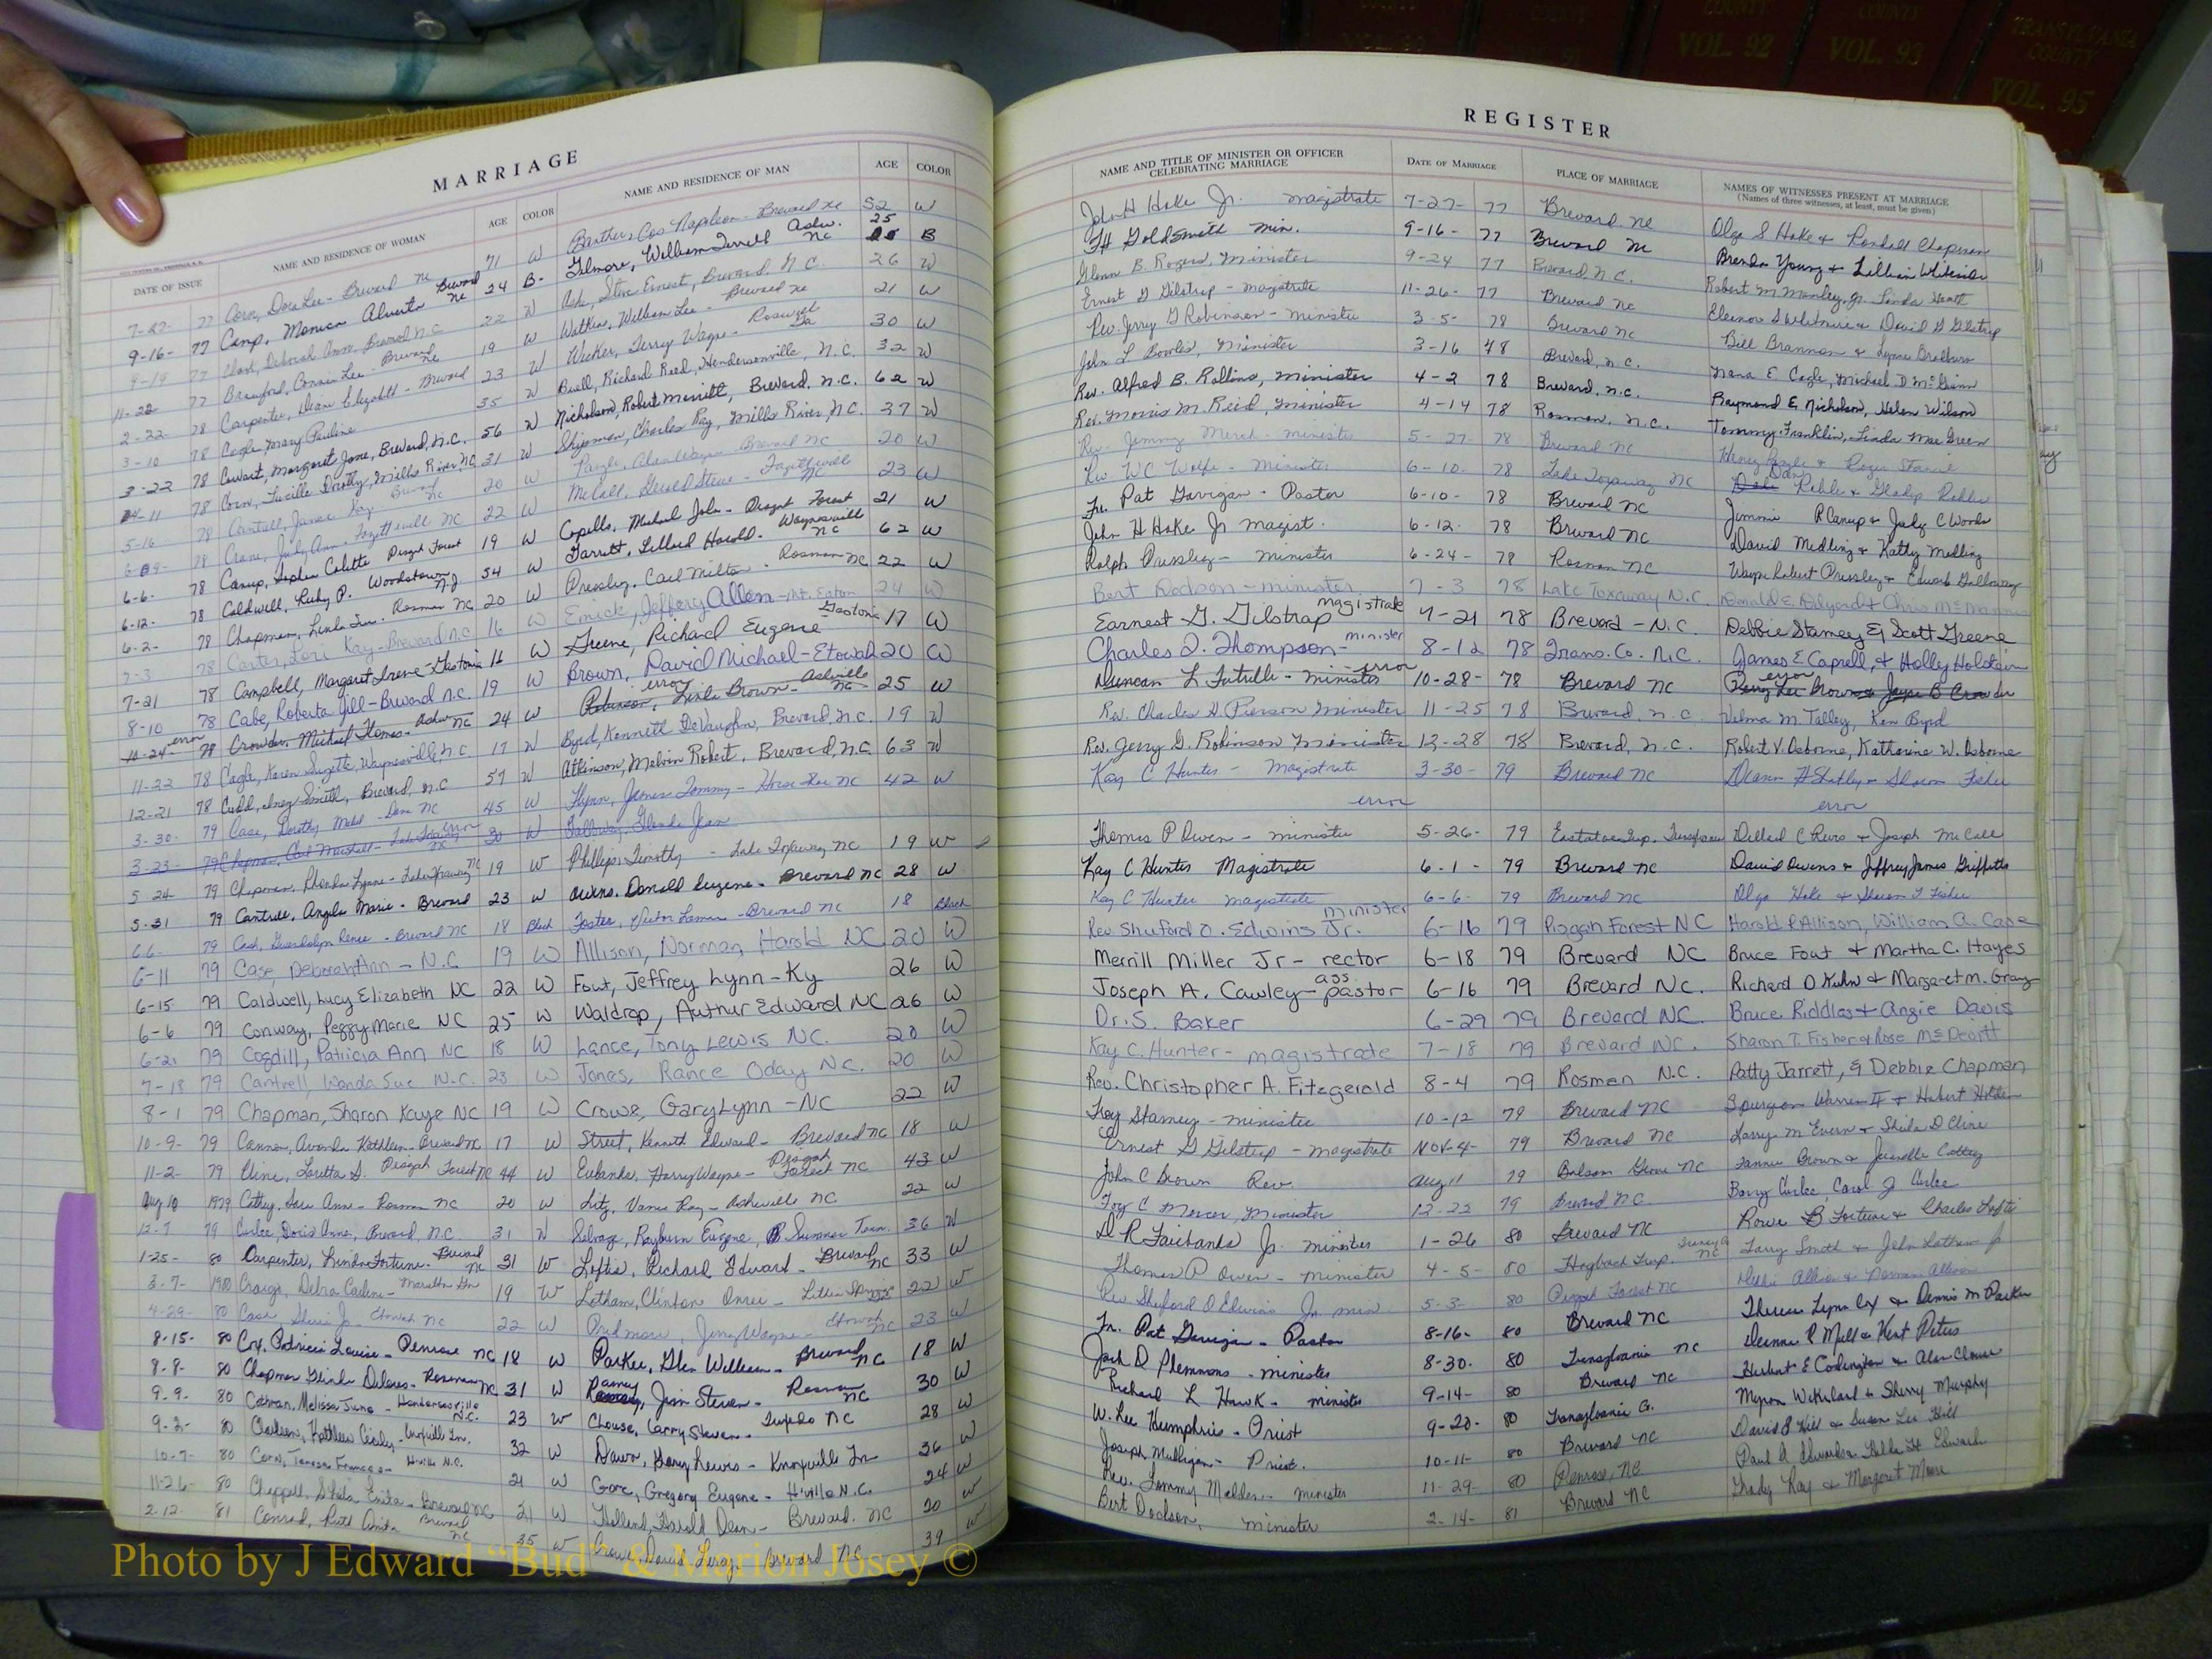 COUNTY VOL. 92
COUNTY VOL. 93
TRANSYLVANIA COUNTY VOL. 95
MARRIAGE
REGISTER
DATE OF ISSUE NAME AND RESIDENCE OF WOMAN AGE COLOR NAME AND RESIDENCE OF MAN AGE COLOR
NAME AND TITLE OF MINISTER OR OFFICER CELEBRATING MARRIAGE DATE OF MARRIAGE PLACE OF MARRIAGE NAMES OF WITNESSES PRESENT AT MARRIAGE
(Names of three witnesses, at least, must be given)
7-27- 77 Corn, Dora Lee - Brevard NC 71 W Napoleon - Brevard NC 52 W John H Hake Jr. magistrate 7-27- 77 Brevard NC Olga S Hake & Randall Chapman
9-16- 77 Camp, Monica Alverta Brevard NC 24 B Gilmore, William Terrell Ashv. NC 25 B Goldsmith Min. 9-16- 77 Brevard NC Brenda Young & Lillian Whiteside
77 Clark, Deborah Anne, Brevard N.C. 22 W Steve Ernest, Brevard, N.C. 26 W Glenn B. Rogers, Minister 9-24 77 Brevard N.C. Robert M Manley, Jr. Linda Heath
11-22- 77 Connie Lee - Brevard NC 19 W William Lee - Brevard NC 21 W Ernest G Gilstrap - magistrate 11-26- 77 Brevard NC Eleanor S Whitmire & David G Gilstrap
2-22- 78 Carpenter, Elizabeth - Brevard 23 W Terry Wayne - Roswell Ga 30 W Rev. Jerry G Robinson - minister 3-5- 78 Brevard NC Bill Brannon &
3-10 78 Cagle, Mary Pauline 35 W Buell, Richard Reed, Hendersonville, N.C. 32 W John L Bowles, Minister 3-16 48 Brevard, n.c. Nana E. Cagle, Michael D McGuinn
3-22 78 Cowart, Margaret Jane, Brevard, N.C. 56 W Nicholson, Robert Merritt, Brevard, N.C. 62 W Rev. Alfred B. Rollins, Minister 4-2 78 Brevard, n.c. Raymond E. Nicholson, Helen Wilson
4-11 78 Corn, Lucille Dorothy, Mills River NC 31 W Shipman, Charles Ray, Mills River, N.C. 37 W Rev. Morris M. Reid, Minister 4-14 78 Rosman, N.C. Tommy Franklin, Linda Mae Green
5-16 78 Cantrell, Janice Kay Brevard NC 20 W Alan Wayne Brevard NC 20 W Rev. Jimmy - minister 5-27- 78 Brevard NC Henry & Roger
78 Crane, Judy Ann - Fayetteville NC 22 W McCall, Gerald Steve - Fayetteville NC 23 W Rev WC Wolfe - Minister 6-10- 78 Lake Toxaway NC Dan &
6-6- 78 Canup, Colette Pisgah Forest 19 W Michael John - Pisgah Forest 21 W Fr. Pat Garrigan - Pastor 6-10- 78 Brevard NC Jimmie R Canup & Judy C Woods
6-12- 78 Caldwell, Ruby P. Woodstown NJ 54 W Garrett, Lillard Harold - Waynesville NC 62 W John H Hake Jr magist. 6-12- 78 Brevard NC David Medling & Kathy Medling
6-2- 78 Chapman, Linda - Rosman NC 20 W Pressley, Carl Milton - Rosman NC 22 W Ralph Pressley - minister 6-24- 78 Rosman NC Wayne Robert Pressley & Edward Galloway
7-3 78 Carter, Lori Kay - Brevard N.C. 16 W Emick, Jeffery Allen - 24 W Bert Dodson - minister 7-3 78 Lake Toxaway N.C. Donald E. &
7-21 78 Campbell, Margaret Irene - Gastonia 16 W Greene, Richard Eugene - Gastonia 17 W Earnest G. Gilstrap magistrate 7-21 78 Brevard - N.C. Debbie Stamey & Scott Greene
8-10 78 Cabe, Roberta Jill - Brevard N.C. 19 W Brown, David Michael - Etowah 20 W Charles D. Thompson - minister 8-12 78 Trans. Co. N.C. James E & Holly
10-24 error 78 Crowder, Michael - Asheville NC 24 W error Brown - Asheville NC 25 W Duncan L Futrelle - minister error 10-28- 78 Brevard NC error
11-22 78 Cagle, Karen Suzette, Waynesville, N.C. 17 W Byrd, Kenneth DeVaughn, Brevard, N.C. 19 W Rev. Charles H. Pierson Minister 11-25 78 Brevard, n.c. Velma M. Talley, Ken Byrd
12-21 78 Smith, Brevard, N.C. 57 W Atkinson, Melvin Robert, Brevard, N.C. 63 W Rev. Jerry G. Robinson Minister 12-28 78 Brevard, n.c. Robert V. Osborne, Katherine W. Osborne
3-30- 79 Case, Dorothy NC 45 W Flynn, James Tommy - Horse Shoe NC 42 W Kay C Hunter - magistrate 3-30- 79 Brevard NC & Sharon Fisher
3-23- 79 Chapman, Carl Marshall - Lake Toxaway NC error 30 W Galloway, Glenda Jean error error
5-24 79 Chapman, Rhonda Lynne - Lake Toxaway NC 19 W Phillips, Timothy - Lake Toxaway NC 19 W Thomas P Owen - minister 5-26- 79 Dillard C & Joseph McCall
5-31 79 Cantrell, Angela Marie - Brevard 23 W Owens, Donald Eugene - Brevard NC 28 W Kay C Hunter Magistrate 6-1- 79 Brevard NC David Owens & Jeffrey James
6-6 79 Cash, Gwendolyn Renee - Brevard NC 18 Black Foster, Victor Lamar - Brevard NC 18 Black Kay C Hunter magistrate 6-6- 79 Brevard NC Olga Hake & Sharon T Fisher
6-11 79 Case, Deborah Ann - N.C 19 W Allison, Norman, Harold NC 20 W Rev. Shuford O. Edwins Jr. minister 6-16 79 Pisgah Forest NC Harold P Allison, William A. Case
6-15 79 Caldwell, Lucy Elizabeth NC 22 W Fout, Jeffrey Lynn - Ky 26 W Merrill Miller Jr - rector 6-18 79 Brevard NC Bruce Fout & Martha C. Hayes
6-6 79 Conway, Peggy Marie NC 25 W Waldrop, Authur Edward NC 26 W Joseph A. Cawley - ass. pastor 6-16 79 Brevard N.C. Richard D Kuhn & Margaret M. Gray
6-21 79 Cogdill, Patricia Ann NC 18 W Lance, Tony Lewis N.C. 20 W Dr. S. Baker 6-29 79 Brevard NC. Bruce Riddles & Angie Davis
7-18 79 Cantrell, Wanda Sue N.C. 23 W Jones, Rance Oday N.C. 20 W Kay C. Hunter - magistrate 7-18 79 Brevard NC. Sharon T. Fisher & Rose McDevitt
8-1 79 Chapman, Sharon Kaye NC 19 W Crowe, Gary Lynn - NC 22 W Rev. Christopher A. Fitzgerald 8-4 79 Rosman N.C. Patty Jarrett, & Debbie Chapman
10-9- 79 Cannon, Kathleen - Brevard NC 17 W Street, Kenneth Edward - Brevard NC 18 W Troy Stamey - minister 10-12 79 Brevard NC Spurgeon Warren & Hubert Holden
11-2- 79 Cline, Loretta S. Pisgah Forest NC 44 W Eubanks, Harry Wayne - Pisgah Forest NC 43 W Ernest G Gilstrap - magistrate Nov-4- 79 Brevard NC Larry M & Shila D Cline
Aug 10 1979 Cathey, Ann - Rosman NC 20 W Litz, Vance Ray - Asheville NC 22 W John C Brown Rev. Aug 11 79 Balsam Grove NC Brown &
12-7 79 Curlee, Doris Anne, Brevard N.C. 31 W Selvage, Rayburn Eugene, Sumner Tenn. 36 W Foy C Mercer, Minister 12-22 79 Brevard N.C. Barry Curlee, Carol J Curlee
1-25- 80 Carpenter, Linda Fortune - Brevard NC 31 W Loftis, Richard Edward - Brevard NC 33 W D R Fairbanks Jr. minister 1-26 80 Brevard NC Rowe B Fortune & Charles Loftis
3-7- 1980 Craigo, Debra 19 W Latham, Clinton 22 W Thomas P Owen - minister 4-5- 80 Hogback Twp. NC Larry Smith & John Latham
4-29- 80 Case Etowah NC 22 W Pridmore, Jerry Wayne - Etowah NC 23 W Rev Shuford O Edwins Jr. min 5-3- 80 Pisgah Forest NC Allison & Norman Allison
8-15- 80 Cox, Patricia Louise - Penrose NC 18 W Parker, Glen William - Brevard NC 18 W Fr. Pat Garrigan - Pastor 8-16- 80 Brevard NC Theresa Lynn Cox & Dennis M Parker
8-8- 80 Chapman Glinda Delores - Rosman NC 31 W Jim Steven - Rosman NC 30 W Jack D Plemmons - minister 8-30. 80 Transylvania NC Deanna R Mull & Kent Peters
9-9- 80 Cothran, Melissa June - Hendersonville N.C. 23 W Crouse, Larry Steven - Tuxedo NC 28 W Richard L Hawk - minister 9-14- 80 Brevard NC Herbert E Codington & Alan Clower
80 Kathleen - Knoxville Tn. 32 W Gary Lewis - Knoxville Tn 36 W W. Lee Humphries - Priest 9-20- 80 Transylvania Co. & Sherry Murphy
10-7- 80 Corn, Teresa Frances - H'ville N.C. 21 W Gore, Gregory Eugene - H'ville N.C. 24 W Joseph Mulligan - Priest. 10-11- 80 Brevard NC David S Hill & Susan Lee Hill
11-26- 80 Chappell, Shila - Brevard NC 21 W Holland, Harold Dean - Brevard, NC 20 W Rev. Tommy - minister 11-29- 80 Penrose NC Paul A Edwards
2-12- 81 Conrad, Ruth Anita Brevard NC 35 W Crowe, David Leroy Brevard NC 39 W Bert Dodson, minister 2-14- 81 Brevard NC Grady Ray & Margaret Moore
Photo by J Edward “Bud” & Marion Josey ©